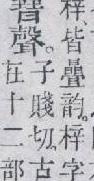 梓、皆疊韵。梓字
子賤切、古
聲。在十二部